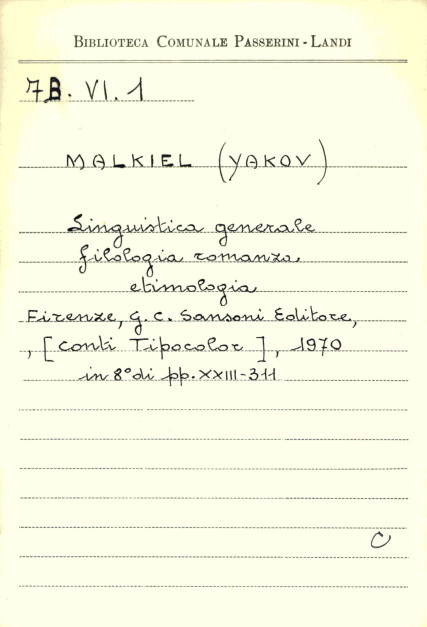 BIBLIOTECA COMUNALE PASSERINI - LANDI
7B. VI. 1
MALKIEL (YAKOV)
Linguistica generale
filologia romanza
etimologia
Firenze, G. C. Sansoni Editore,
, [Conti Tipocolor], 1970
in 8° di pp. XXIII-311
C